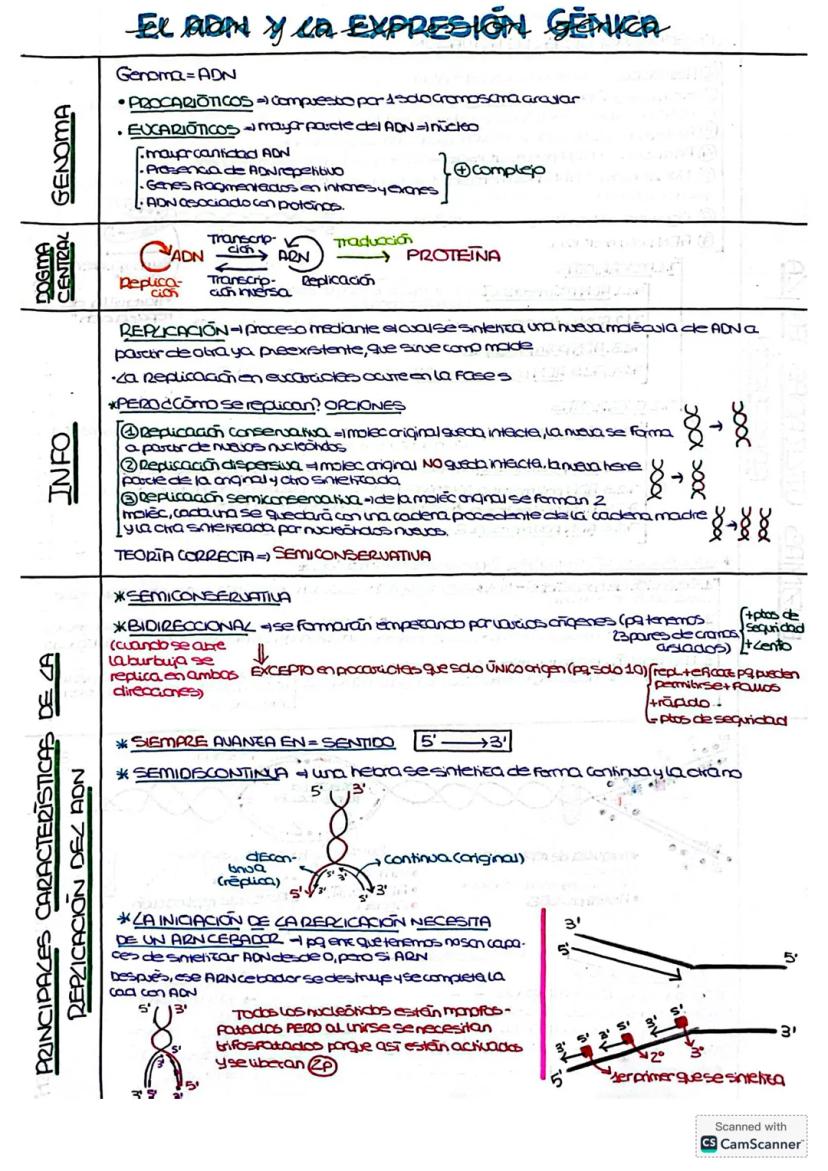 EL ADN Y LA EXPRESIÓN GÉNICA
GENOMA
Genoma = ADN
• PROCARIÓTICOS ⇒ compuesto por 1 solo cromosoma circular
• EUCARIÓTICOS ⇒ mayor parte del ADN ⇒ núcleo
· mayor cantidad ADN
· Presencia de ADN repetitivo
· Genes fragmentados en intrones y exones
· ADN asociado con proteínas.
⊕ complejo
DOGMA CENTRAL
ADN
Transcrip-
ción
ARN
Traducción
PROTEÍNA
Replica-
ción
Transcrip-
ción inversa
Replicación
INFO
REPLICACIÓN ⇒ proceso mediante el cual se sintetiza una nueva molécula de ADN a
partir de otra ya preexistente, que sirve como molde
· La Replicación en eucariotas ocurre en la Fase S
*PERO ¿Cómo se replican? OPCIONES
① Replicación conservativa ⇒ molec original queda intacta, la nueva se forma
a partir de nuevos nucleótidos
② Replicación dispersiva ⇒ molec original NO queda intacta, la nueva tiene
parte de la original y otro sintetizada
③ Replicación semiconservativa ⇒ de la moléc original se forman 2
moléc, cada una se quedará con una cadena procedente de la cadena madre
y la otra sintetizada por nucleótidos nuevos.
TEORÍA CORRECTA ⇒ SEMICONSERVATIVA
PRINCIPALES CARACTERÍSTICAS DE LA
REPLICACIÓN DEL ADN
* SEMICONSERVATIVA
* BIDIRECCIONAL ⇒ se formarán empezando por varios orígenes (pq tenemos
23 pares de croms
aislados)
+ ptos de
seguridad
+ Lento
(cuando se abre
la burbuja se
replica en ambos
direcciones)
EXCEPTO en procariotas que solo ÚNICO origen (pq solo 1 cr)
repl. + eficaz pq pueden
permitirse + fallos
+ rápido
- ptos de seguridad
* SIEMPRE AVANZA EN = SENTIDO 5' → 3'
* SEMIDISCONTINUA ⇒ una hebra se sintetiza de forma continua y la otra no
5' 3'
discon-
tinua
(réplica)
continua (original)
5' 3' 5' 3' 5' 3'
* LA INICIACIÓN DE LA REPLICACIÓN NECESITA
DE UN ARN CEBADOR ⇒ pq enz que tenemos no son capa-
ces de sintetizar ADN desde 0, pero si ARN
Después, ese ARN cebador se destruye y se completa la
cad con ADN
5' 3'
Todos los nucleótidos están monofos-
fatados PERO al unirse se necesitan
trifosfatados porque así están activados
y se liberan 2P
3'
5'
5'
3' 5' 3' 5' 3' 5'
3'
2º
3º
5'
1er primer que se sintetiza
Scanned with
CS CamScanner